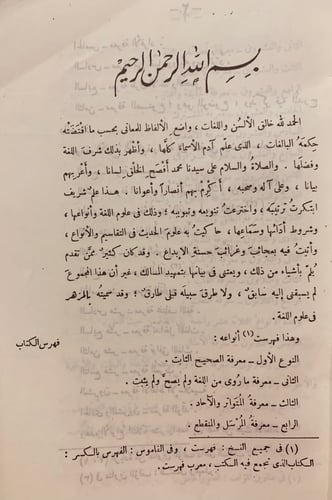 بسم الله الرحمن الرحيم
الحمد لله خالق الألسُن واللغات، واضع الألفاظ للمعانى بحسب ما اقتضته
حِكَمُه البالغات، الذى علّم آدم الأسماء كلَّها، وأظهر بذلك شرفَ اللغة
وفضلَها. والصلاةُ والسلام على سيدنا محمد أَفْصَحِ الخلق لسانا، وأَعْرَبِهم
بيانا، وعلى آله وصحبه، أَكْرِمْ بهم أنصاراً وأعوانا. هذا علم شريف
ابتكرتُ ترتيبَه، واخترعتُ تنويعه وتبويبه؛ وذلك فى علوم اللغة وأنواعها،
وشروط أدائها وسماعِها، حاكيتُ به علومَ الحديث فى التقاسيم والأنواع،
وأتيتُ فيه بعجائبَ وغرائبَ حسنةِ الإبداع. وقد كان كثيرٌ ممّن تقدم
يُلمّ بأشياء من ذلك، ويعتنى فى بيانها بتمهيد المسالك، غير أن هذا المجموع
لم يسبقنى إليه سابق، ولا طرق سبيلَه قبلى طارق؛ وقد سميتُه بالمُزهر
فى علوم اللغة.
وهذا فهرست(١) أنواعه:
فهرس الكتاب
النوع الأول – معرفة الصحيح الثابت.
الثانى – معرفة ما رُوى من اللغة ولم يصحّ ولم يثبت.
الثالث – معرفةُ المُتَواتر والآحاد.
الرابع – معرفة المُرْسَل والمنقطع.
(١) فى جميع النسخ: فهرست، وفى القاموس: الفهرس بالكسر:
الكتاب الذى تجمع فيه الكتب، معرب فهرست.